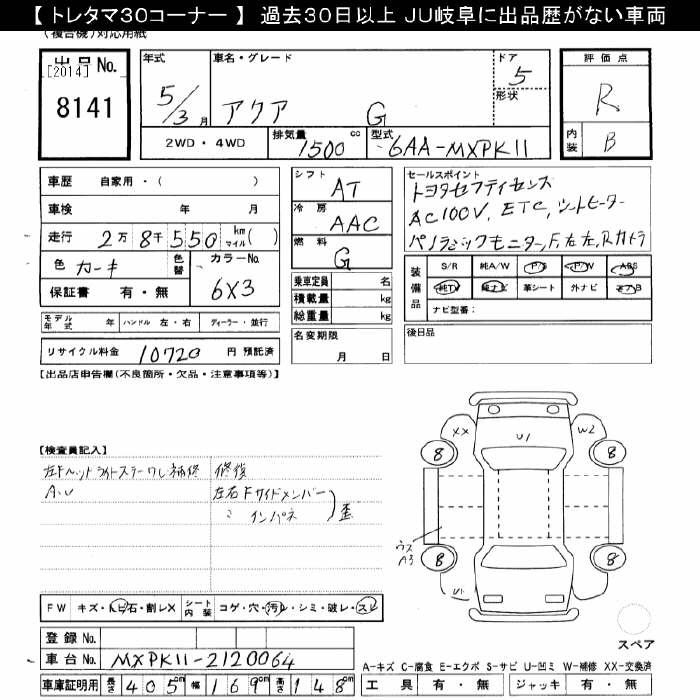 【 トレタマ30コーナー 】 過去30日以上 JU岐阜に出品歴がない車両
(複合機)対応用紙
出品 No.
[2014]
8141
年式
5/3 月
車名・グレード
アクア G
ドア
5
形状
評価点
R
内装 B
2WD・4WD
排気量 1500 cc
型式 6AA-MXPK11
車歴 自家用・( )
車検 年 月
走行 2万 8千 550 km マイル( )
色 ガーキ 色替 カラーNo. 6X3
保証書 有・無
モデル年式 年 ハンドル 左・右 ディーラー・並行
リサイクル料金 10720 円 預託済
シフト AT
冷房 AAC
燃料 G
乗車定員 名
積載量 kg
総重量 kg
名変期限
月 日
セールスポイント
トヨタセフティセンス
AC100V, ETC, シートヒーター
パノラミックモニター, F, 左右, Rカメラ
装備品
S/R 純A/W P/S P/W ABS
純TV 純ナビ 革シート 外ナビ エアB
ナビ型番:
後日品
【出品店申告欄(不良箇所・欠品・注意事項等)】
【検査員記入】
左Fヘッドライトステーワレ補修
A.U
修復
左右Fサイドメンバー
〃 インパネ
歪
XX U1 W2
8 8
8 8
ウス
A3
U1
スペア
FW キズ・トビ石・割レX シート内装 コゲ・穴・汚レ・シミ・破レ・スレ
登録 No.
車台 No. MXPK11-2120064
車庫証明用 長さ 405cm 幅 169cm 高さ 148cm
A-キズ C-腐食 E-エクボ S-サビ U-凹ミ W-補修 XX-交換済
工具 有・無 ジャッキ 有・無